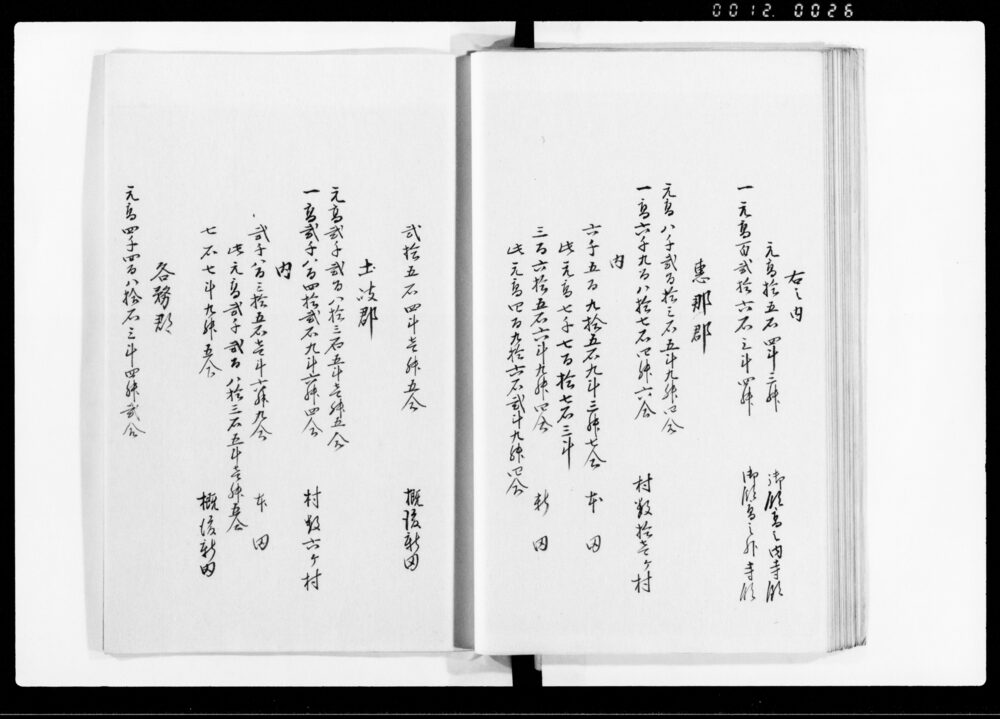 0012. 0026
右之内
元高拾五石四斗二升 御領高之内寺領
一元高百弐拾六石三斗四升 御領高之外寺領
恵那郡
元高八千弐百拾三石五斗九升四合
一高六千九百八拾七石四升六合 村数拾壱ヶ村
内
六千五百九拾五石九斗三升七合 本田
此元高七千七百拾七石三斗
三百六拾五石六斗九升四合 新田
此元高四百九拾六石弐斗九升四合
弐拾五石四斗壱升五合 概後新田
土岐郡
元高弐千弐百八拾三石五斗壱升五合
一高弐千八百四拾弐石九斗六升四合 村数六ヶ村
内
弐千八百三拾五石壱斗六升九合 本田
此元高弐千弐百八拾三石五斗壱升五合
七石七斗九升五合 概後新田
各務郡
元高四千四百八拾石三斗四升弐合